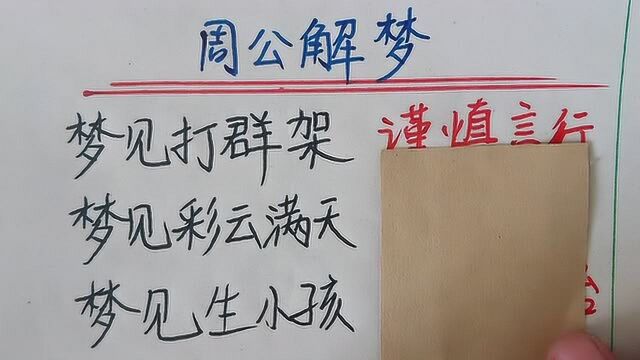 周公解梦
梦见打群架 谨慎言行
梦见彩云满天
梦见生小孩